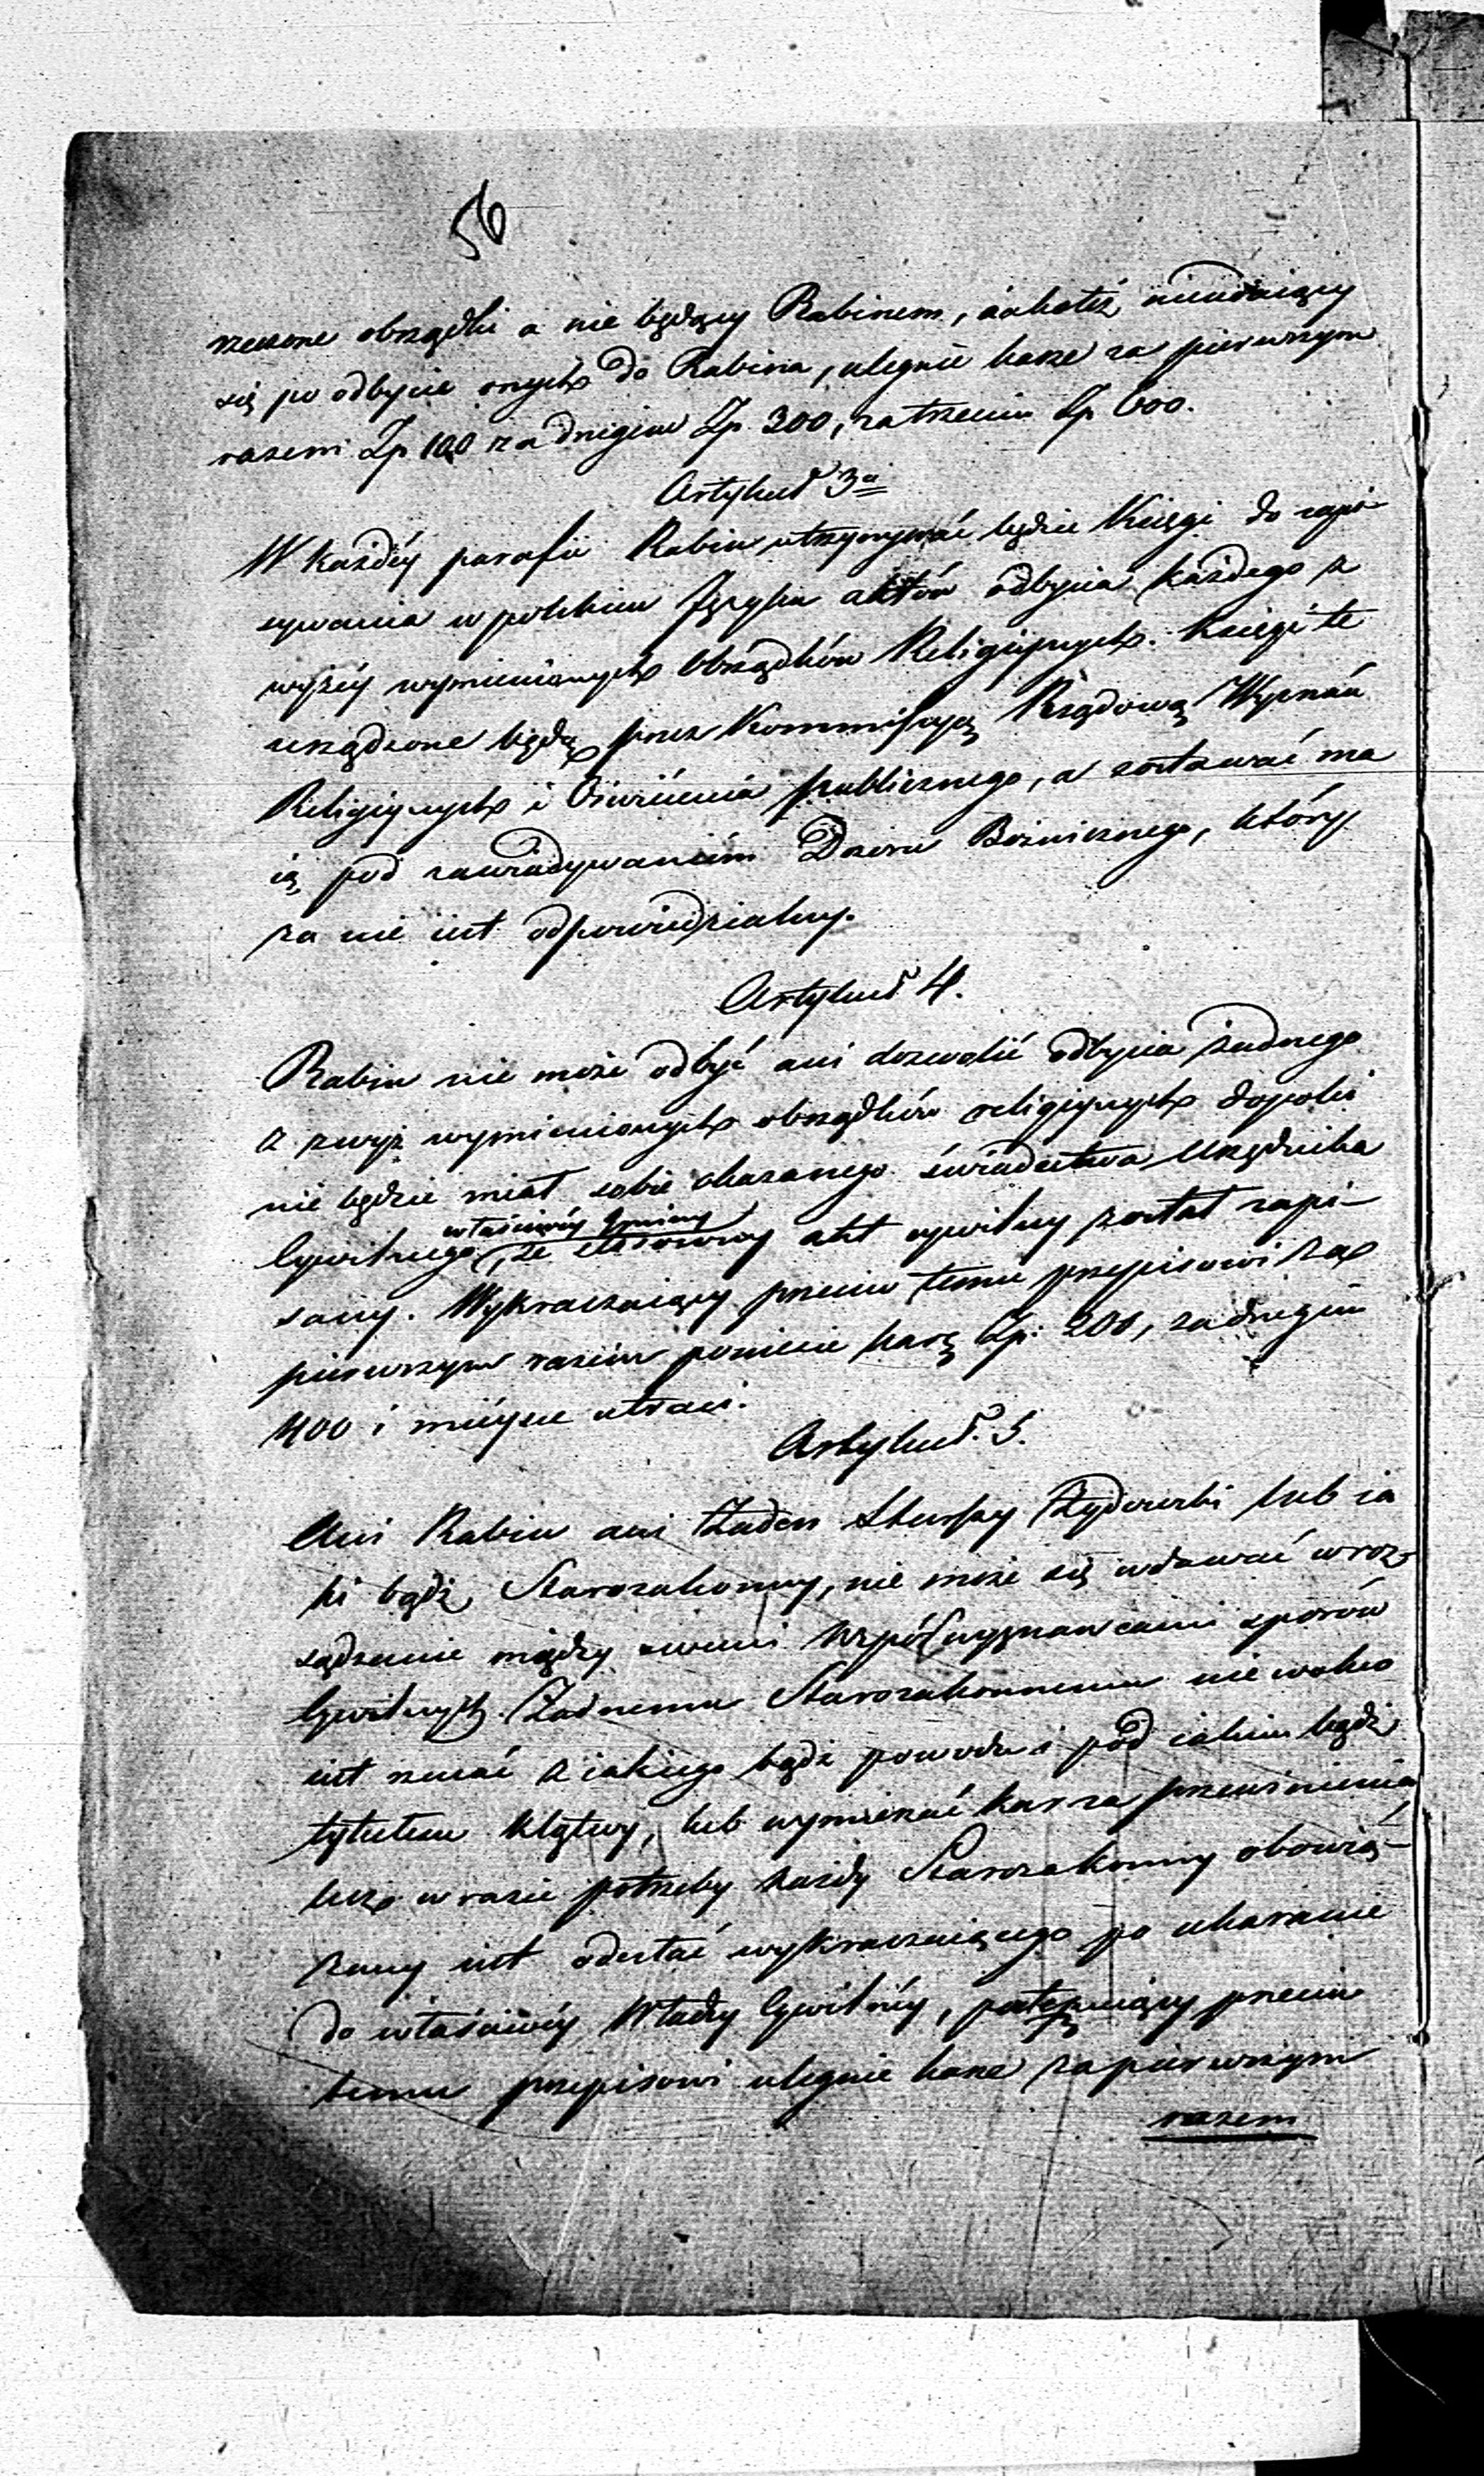 56
rzeczone obrządki a nie będący Rabinem, iakoteż nieudaiący
się po odbycie onych do Rabina, ulegnie karze za pierwszym
razem Zp 100 za drugim Zp. 300, za trzecim Zp 600.
Artykuł 3ci
W każdéy parafii Rabin utrzymywać będzie Księgi do zapi-
sywania w polskim Języku aktów odbycia każdego z
wyżéy wymienionych Obrządków Religiynych. Księgi te
urządzone będą przez Kommissyą Rządową Wyznań
Religiynych i Oświécenia publicznego, a zostawać ma
ią pod zawiadywaniem Dozoru Bożnicznego, który
za nie iest odpowiedzialny.
Artykuł 4.
Rabin nie może odbyć ani dozwolić odbycia żadnego
z zwyż wymienionych obrządków religiynych dopóki
nie będzie miał sobie okazanego świadectwa Urzędnika
właściwéy Gminy
Cywilnego, że stosowny akt cywilny został zapi-
sany. Wykraczaiący przeciw temu przepisowi za
pierwszym razem poniesie karę Zp. 200, za drugim
400 i mieysce utraci.
Artykuł. 5.
Ani Rabin ani Żaden Starszy Żydowski lub ia
ki bądź Starozakonny, nie może się wdawać w roz-
sądzenie między swemi Współwyznawcami sporów
Cywilnych. Żadnemu Starozakonnemu nie wolno
iest rzucać z iakiego bądź powodu i pod iakim bądź
tytułem Klątwy, lub wymierzać kar za przewinienia
lecz w razie potrzeby każdy Starozakonny obowią-
zany iest odesłać wykraczaiącego po ukaranie
do właściwéy Władzy Cywilnéy, postępuiący przeciw
temu przepisowi ulegnie karze za pierwszym
razem